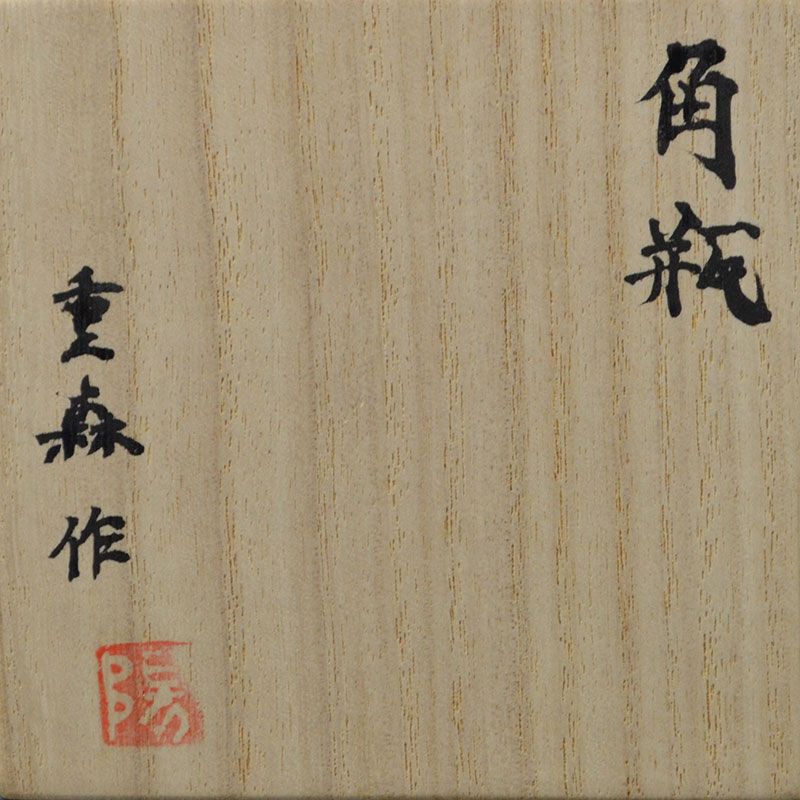 角瓶
重森作
陽